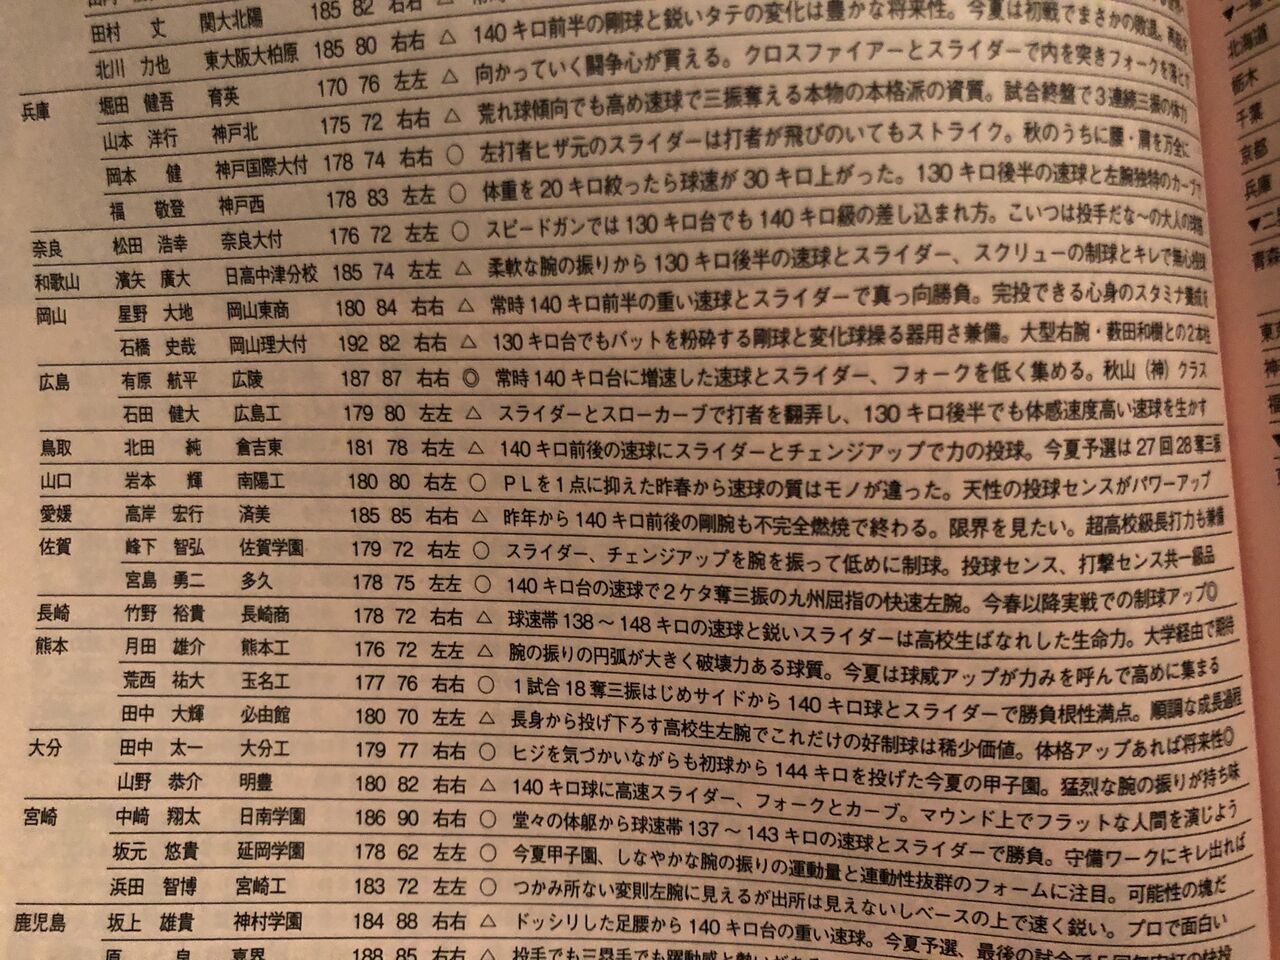 田村 丈 関大北陽 185 82 右右 △
北川 力也 東大阪大柏原 185 80 右右 △ 140キロ前半の剛球と鋭いタテの変化は豊かな将来性。今夏は初戦でまさかの敗退。
兵庫 堀田 健吾 育英 170 76 左左 △ 向かっていく闘争心が買える。クロスファイアーとスライダーで内を突きフォークを落とす
山本 洋行 神戸北 175 72 右右 △ 荒れ球傾向でも高め速球で三振奪える本物の本格派の資質。試合終盤で3連続三振の体力
岡本 健 神戸国際大付 178 74 右右 ○ 左打者ヒザ元のスライダーは打者が飛びのいてもストライク。秋のうちに腰・肩を万全に
福 敬登 神戸西 178 83 左左 ○ 体重を20キロ絞ったら球速が30キロ上がった。130キロ後半の速球と左腕独特のカーブで
奈良 松田 浩幸 奈良大付 176 72 左左 ○ スピードガンでは130キロ台でも140キロ級の差し込まれ方。こいつは投手だな〜の大人の
和歌山 濱矢 廣大 日高中津分校 185 74 左左 △ 柔軟な腕の振りから130キロ後半の速球とスライダー、スクリューの制球とキレで無心投球
岡山 星野 大地 岡山東商 180 84 右右 △ 常時140キロ前半の重い速球とスライダーで真っ向勝負。完投できる心身のスタミナ養成を
石橋 史哉 岡山理大付 192 82 右右 △ 130キロ台でもバットを粉砕する剛球と変化球操る器用さ兼備。大型右腕・薮田和樹との2本柱
広島 有原 航平 広陵 187 87 右右 ◎ 常時140キロ台に増速した速球とスライダー、フォークを低く集める。秋山（神）クラス
石田 健大 広島工 179 80 左左 △ スライダーとスローカーブで打者を翻弄し、130キロ後半でも体感速度高い速球を生かす
鳥取 北田 純 倉吉東 181 78 右左 △ 140キロ前後の速球にスライダーとチェンジアップで力の投球。今夏予選は27回28奪三振
山口 岩本 輝 南陽工 180 80 右左 ○ PLを1点に抑えた昨春から速球の質はモノが違った。天性の投球センスがパワーアップ
愛媛 高岸 宏行 済美 185 85 右右 △ 昨年から140キロ前後の剛腕も不完全燃焼で終わる。限界を見たい。超高校級長打力も兼備
佐賀 峰下 智弘 佐賀学園 179 72 右左 ○ スライダー、チェンジアップを腕を振って低めに制球。投球センス、打撃センス共一級品
宮島 勇二 多久 178 75 左左 ○ 140キロ台の速球で2ケタ奪三振の九州屈指の快速左腕。今春以降実戦での制球アップ◎
長崎 竹野 裕貴 長崎商 178 72 右右 △ 球速帯138〜148キロの速球と鋭いスライダーは高校生ばなれした生命力。大学経由で期待
熊本 月田 雄介 熊本工 176 72 左左 △ 腕の振りの円弧が大きく破壊力ある球質。今夏は球威アップが力みを呼んで高めに集まる
荒西 祐大 玉名工 177 76 右右 ○ 1試合18奪三振はじめサイドから140キロ球とスライダーで勝負根性満点。順調な成長過程
田中 大輝 必由館 180 70 左左 △ 長身から投げ下ろす高校生左腕でこれだけの好制球は稀少価値。体格アップあれば将来性◎
大分 田中 太一 大分工 179 77 右右 ○ ヒジを気づかいながらも初球から144キロを投げた今夏の甲子園。猛烈な腕の振りが持ち味
山野 恭介 明豊 180 82 右右 △ 140キロ球に高速スライダー、フォークとカーブ。マウンド上でフラットな人間を演じよう
宮崎 中﨑 翔太 日南学園 186 90 右右 ○ 堂々の体躯から球速帯137〜143キロの速球とスライダーで勝負。守備ワークにキレ出れば
坂元 悠貴 延岡学園 178 62 左左 ○ 今夏甲子園、しなやかな腕の振りの運動量と連動性抜群のフォームに注目。可能性の塊だ
浜田 智博 宮崎工 183 72 左左 ○ つかみ所ない変則左腕に見えるが出所は見えないしベースの上で速く鋭い。プロで面白い
鹿児島 坂上 雄貴 神村学園 184 88 右右 △ ドッシリした足腰から140キロ台の重い速球。今夏予選、最後の試合で5回
188 85 右右 △ 投手でも三塁手でも躍動感と勢いが
北海道
栃木
千葉
京都
兵庫
青森